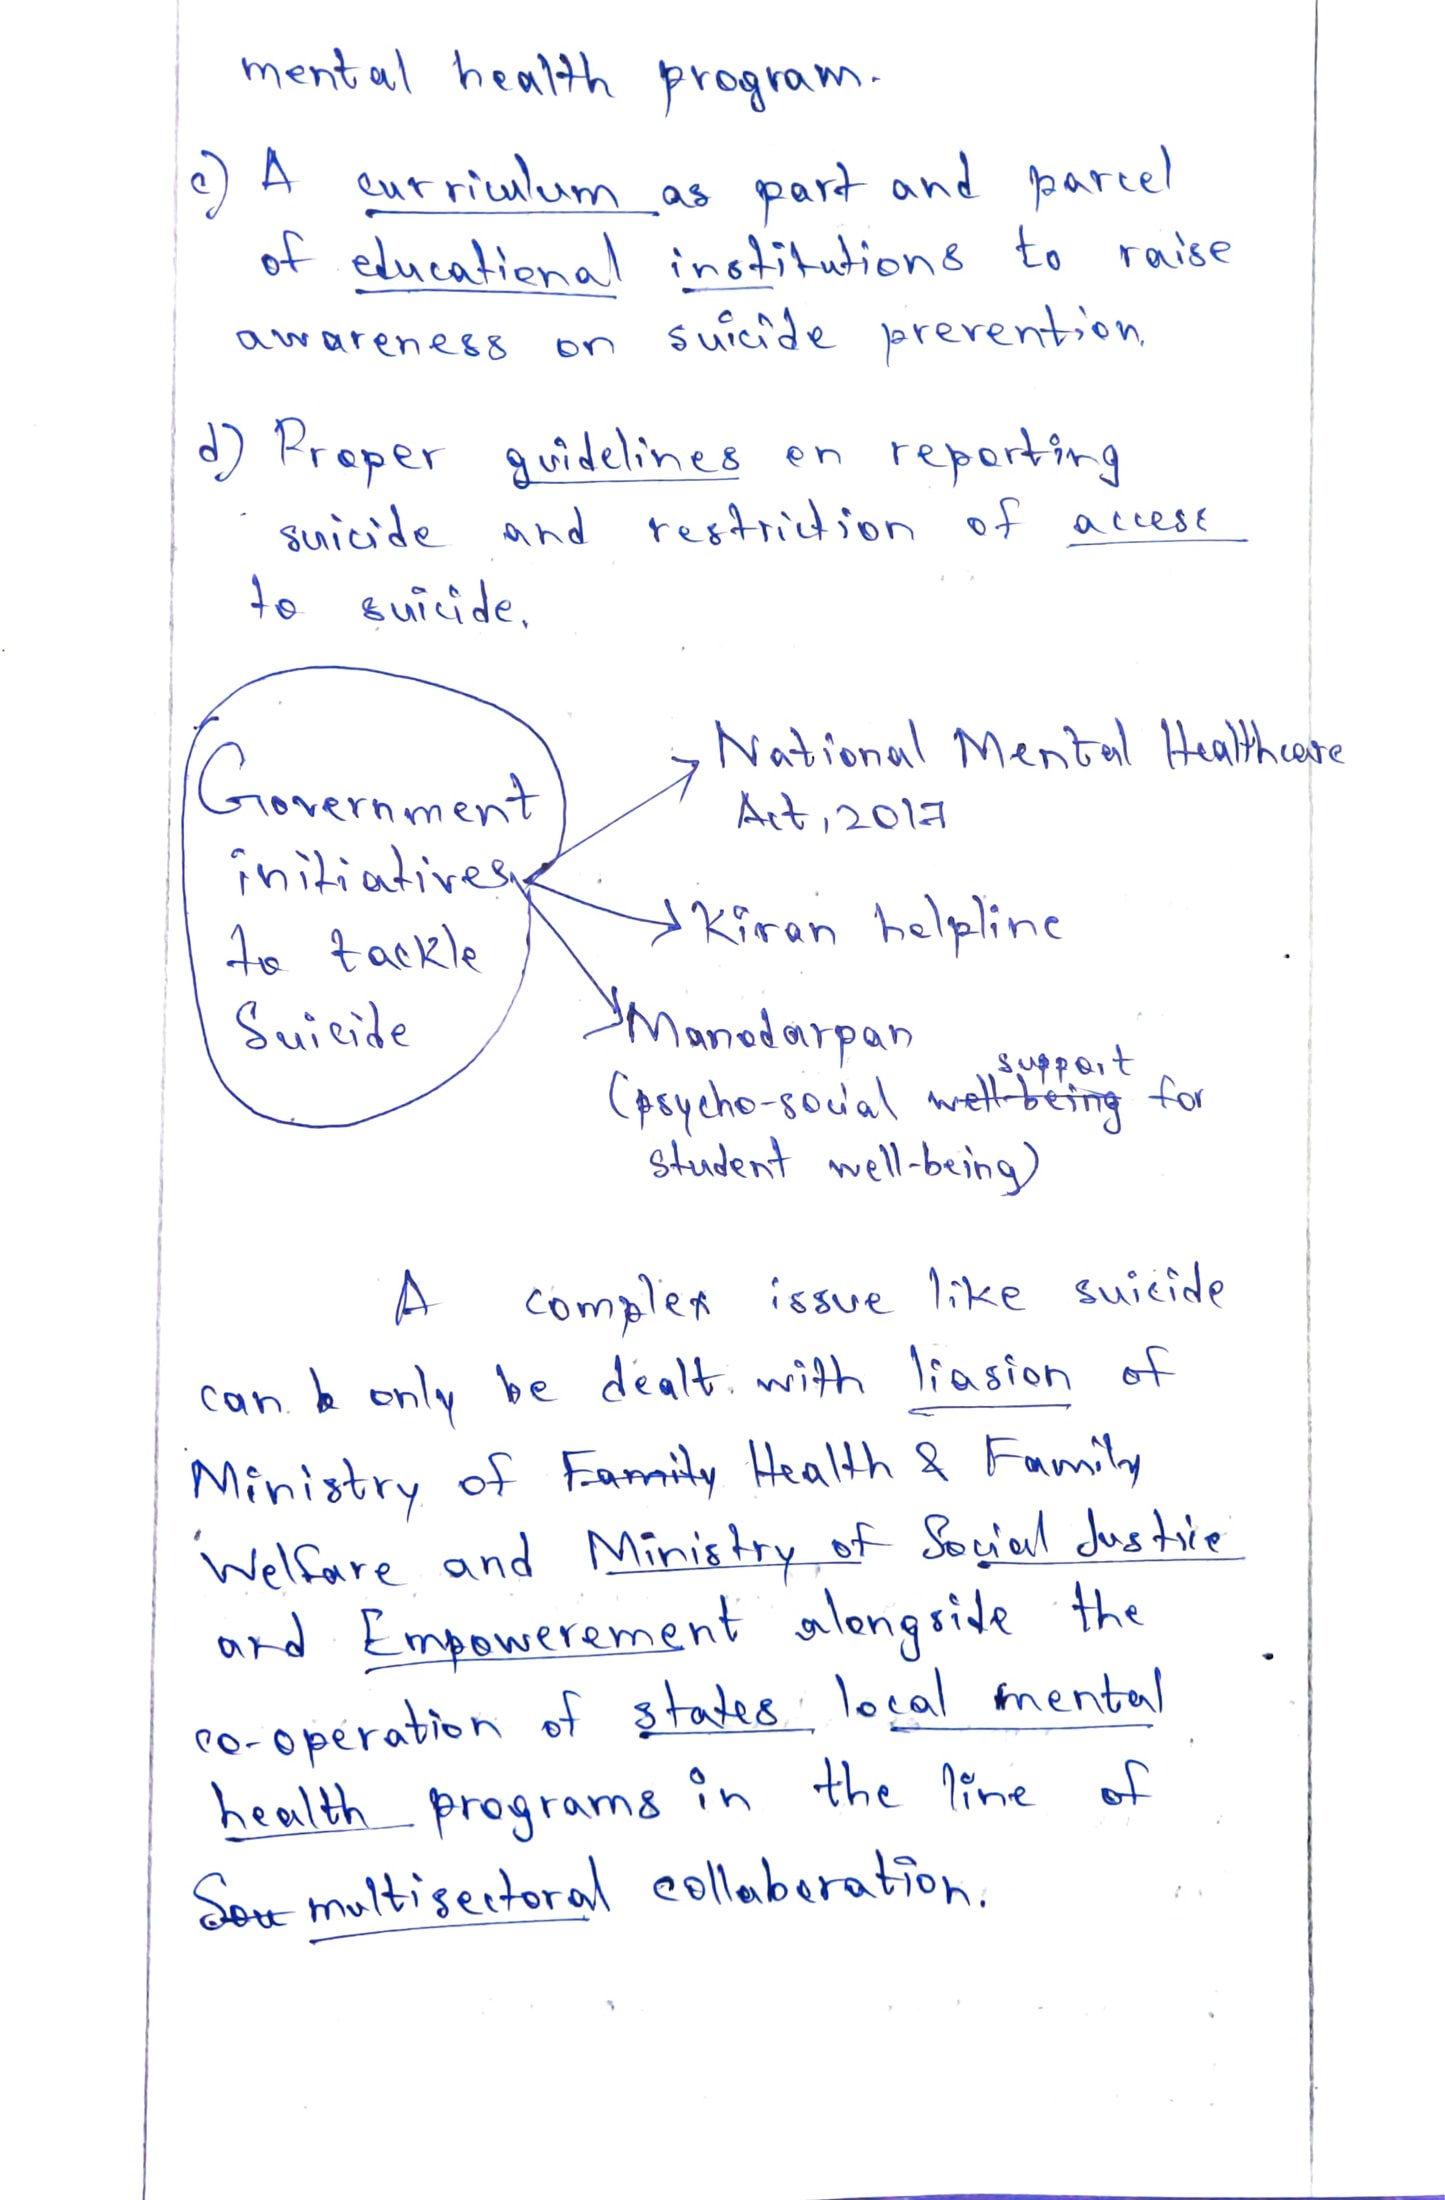 mental health program.
c) A curriculum as part and parcel
of educational institutions to raise
awareness on suicide prevention.
d) Proper guidelines on reporting
suicide and restriction of access
to suicide.
Government
initiatives
to tackle
Suicide
National Mental Healthcare
Act, 2017
Kiran helpline
Manodarpan
support
(psycho-social well-being for
student well-being)
A complex issue like suicide
can b only be dealt with liasion of
Ministry of Family Health & Family
Welfare and Ministry of Social Justice
and Empowerement alongside the
co-operation of states, local mental
health programs in the line of
Sou multisectoral collaboration.